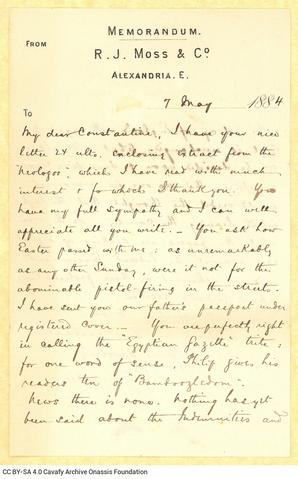 MEMORANDUM.
FROM
R. J. MOSS & Co.
ALEXANDRIA, E.
7 May 1884
To
My dear Constantine, I have your nice
letter 24 ulto. enclosing extract from the
"Neologos", which I have read with much
interest & for which I thank you. You
have my full sympathy and I can well
appreciate all you write. — You ask how
Easter passed with me: as unremarkably
as any other Sunday, were it not for the
abominable pistol-firing in the streets.
I have sent you our father's passport under
registered cover. — You are perfectly right
in calling the "Egyptian Gazette" trite:
for one word of sense, Philip gives his
readers ten of "Bamboozledom".
News there is none. Nothing has yet
been said about the Indemnities and
CC BY-SA 4.0 Cavafy Archive Onassis Foundation